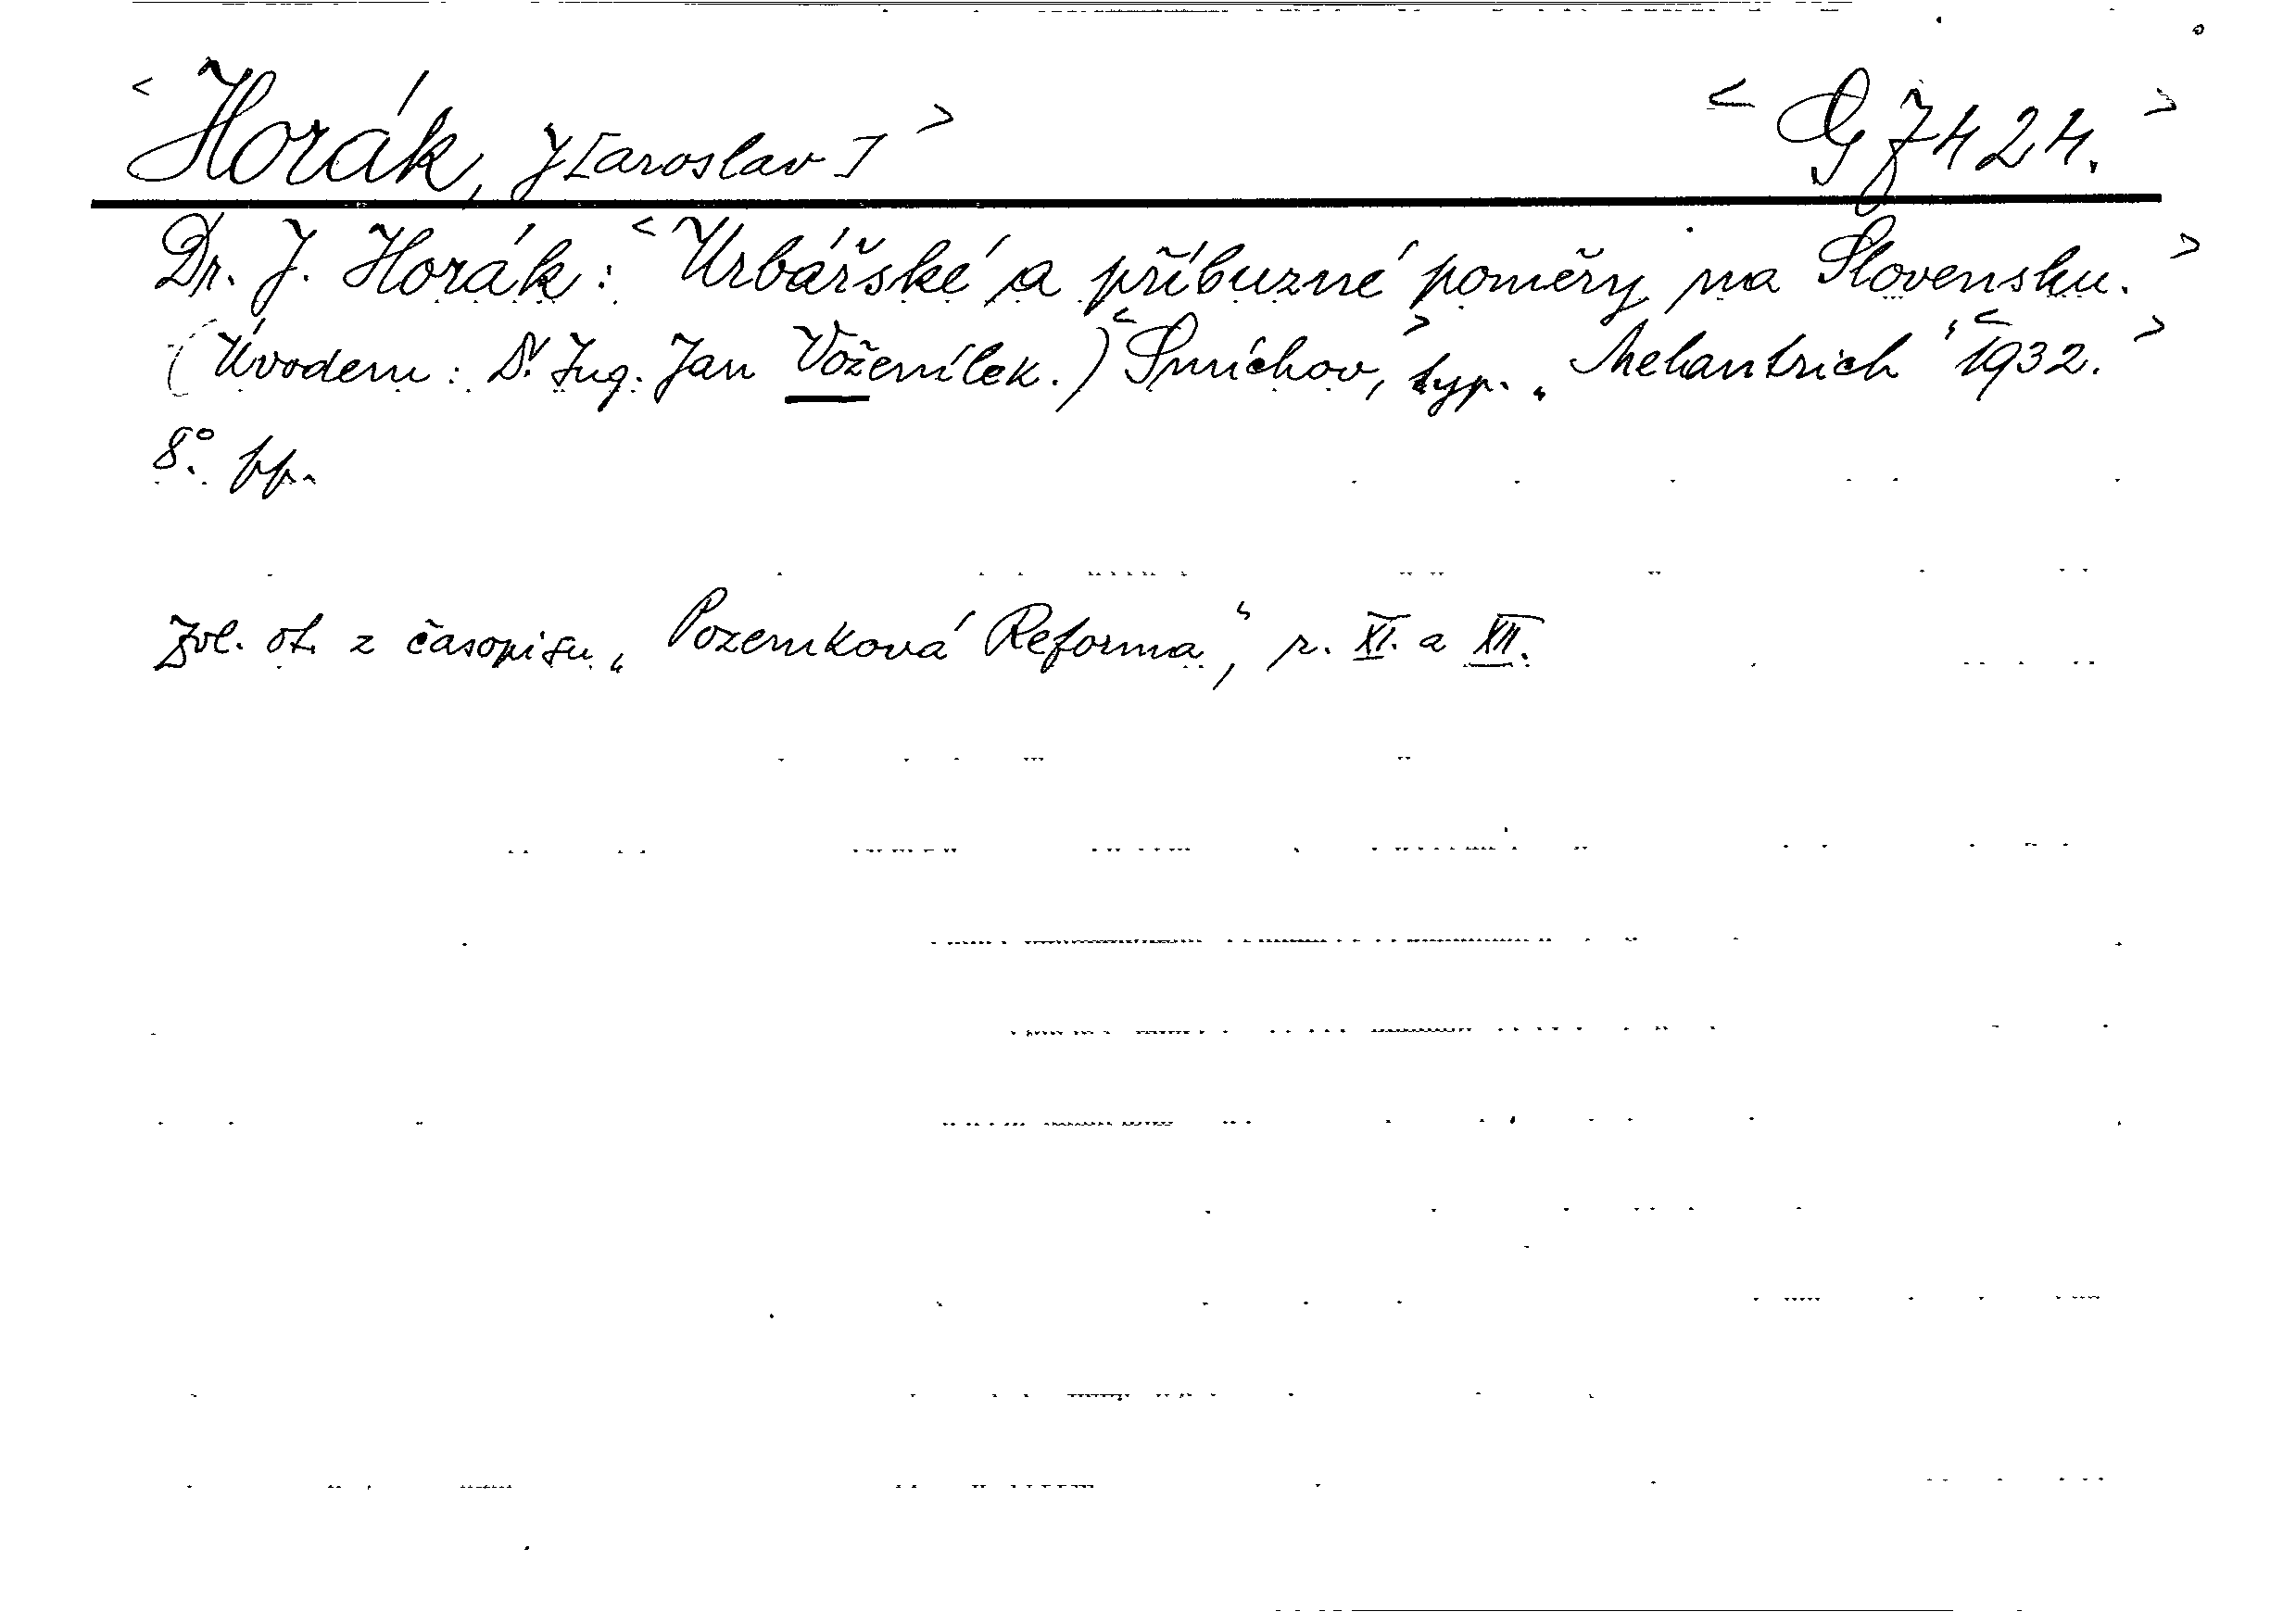 < Horák, J[aroslav] > < G 7424. >
Dr. J. Horák: < Urbářské a příbuzné poměry na Slovensku. >
(Úvodem: Dr. Ing. Jan Voženílek.) < Smíchov, > typ. „Melantrich“ < 1932. >
8°. pp.
Zvl. ot. z časopisu „Pozemková Reforma“, r. XI. a XII.